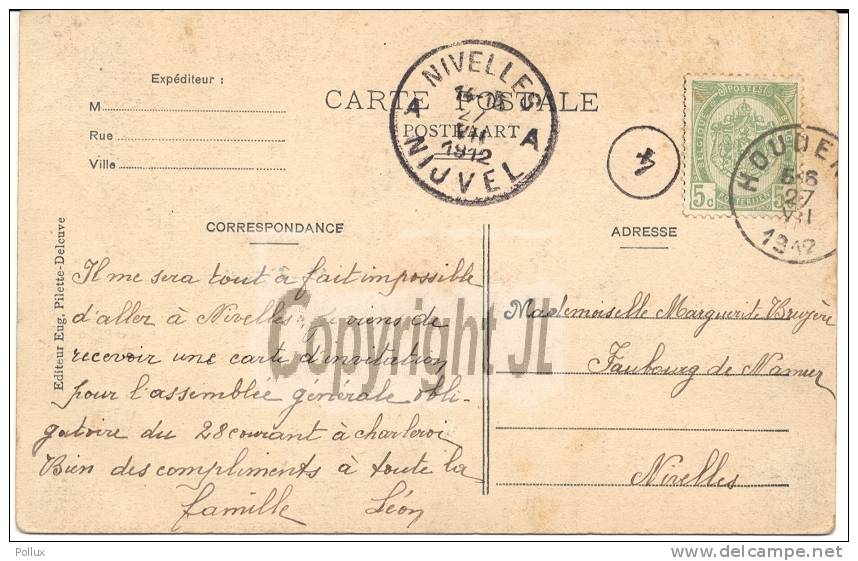 Expéditeur :
M
Rue
Ville
CARTE POSTALE
POSTKAART
NIVELLES
14-15
27
VII
1912
A A
NIJVEL
4
POSTES
BELGIQUE
5c 5
POSTERIJEN
HOUDEN
5-6
27
VII
1912
CORRESPONDANCE
ADRESSE
Editeur Eug. Pilette-Delcuve
Il me sera tout à fait impossible
d'aller à Nivelles je viens de
recevoir une carte d'invitation
pour l'assemblée générale obli-
gatoire du 28 courant à charleroi
Bien des compliments à toute la
famille Léon
Mademoiselle Marguerite Bruyère
Faubourg de Namur
Nivelles
Copyright JL
Pollux
delcampe.net